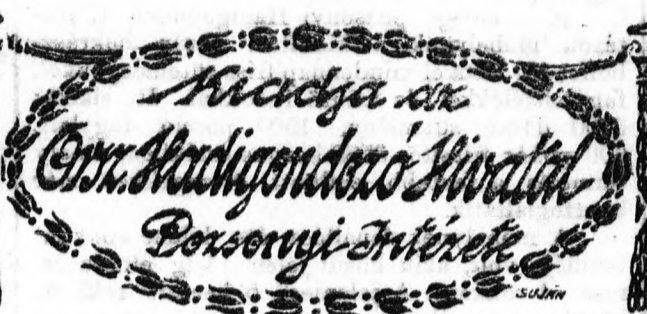 Kiadja az
Orsz. Hadigondozo Hivatal
Pozsonyi Intezete
SUJÁN